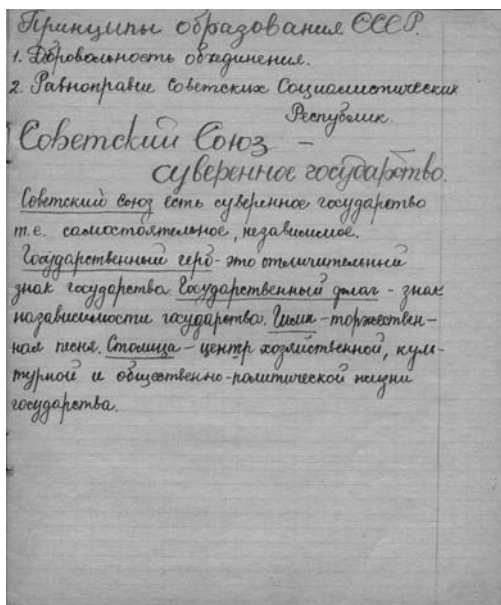 Принципы образования СССР.
1. Добровольность объединения.
2. Равноправие Советских Социалистических
Республик.
Советский Союз –
суверенное государство.
Советский Союз есть суверенное государство
т.е. самостоятельное, независимое.
Государственный герб - это отличительный
знак государства. Государственный флаг - знак
назависимости государства. Гимн - торжествен-
ная песня. Столица - центр хозяйственной, куль-
турной и общественно-политической жизни
государства.